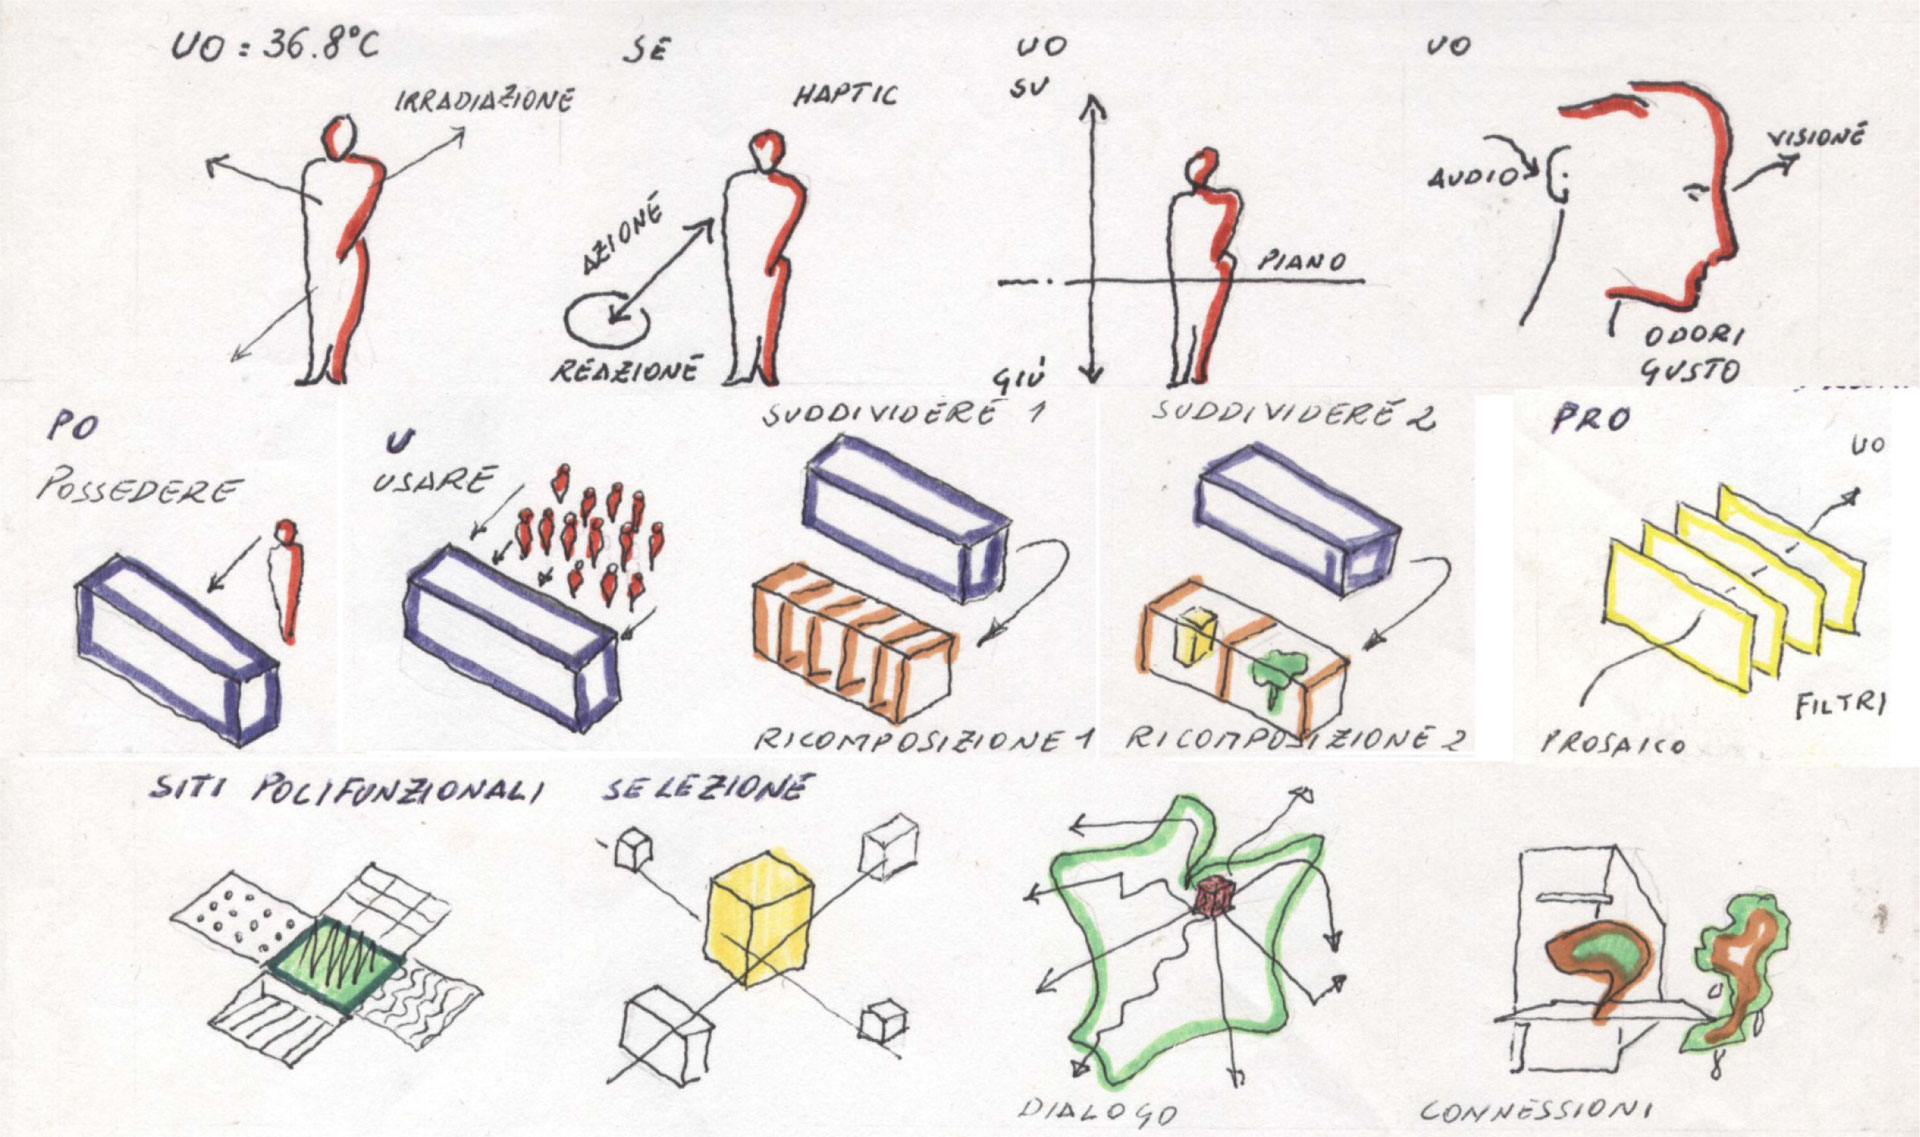 UO = 36.8°C
IRRADIAZIONE
SE
HAPTIC
AZIONE
REAZIONE
UO
SU
PIANO
GIÙ
UO
AUDIO
VISIONE
ODORI
GUSTO
PO
POSSEDERE
U
USARE
SUDDIVIDERE 1
RICOMPOSIZIONE 1
SUDDIVIDERE 2
RICOMPOSIZIONE 2
PRO
UO
FILTRI
PROSAICO
SITI POLIFUNZIONALI
SELEZIONE
DIALOGO
CONNESSIONI